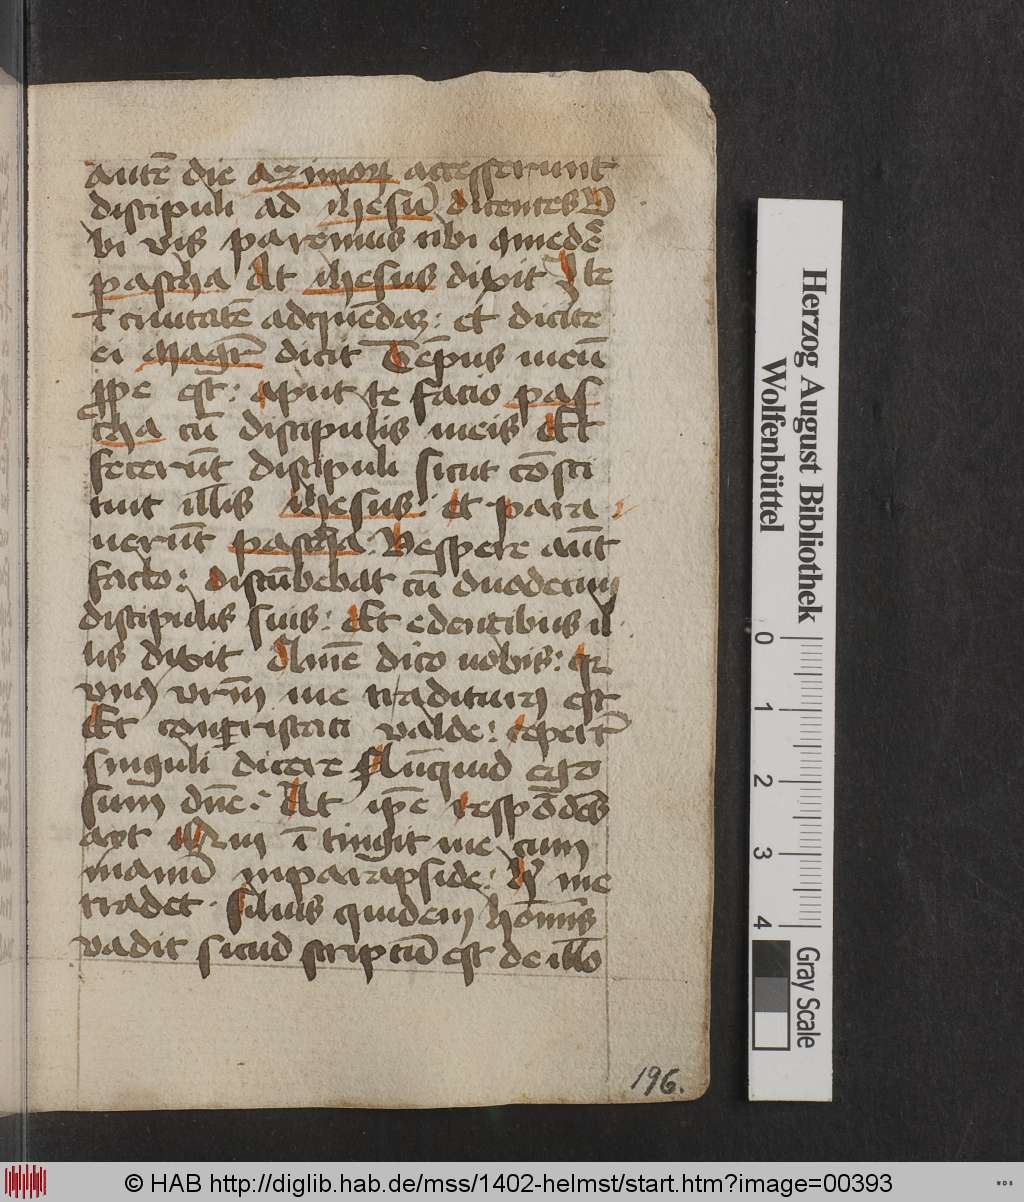 autē die azimoꝝ accesserunt
discipuli ad ihesū dicentes V
bi vis paremus tibi ꝯmedē
pascha At ihesus dixit Ite
ī ciuitatē ad quēdaz : et dicite
ei magr̄ dicit Tēpus meū
ꝓpe est : aput te facio pas
cha cū discipulis meis Et
fecerūt discipuli sicut cōsti
tuit illis ihesus : et para
uerūt pascha : Vespere aūt
facto : discūbebat cū duodecim
discipulis suis : Et edentibus il
lis dixit Amē dico uobis : qꝛ
vnꝰ vrm̄ me traditurꝰ est
Et contristati valde : ceper̄t
singuli dicere Nūquid ego
sum dn̄e : At ip̄e respōdēs
ayt Qui ītingit me cum
manū in parapside : hic me
tradet . filius quidem homīs
vadit sicud scriptū est de illo
196.
Herzog August Bibliothek
Wolfenbüttel
0 1 2 3 4
Gray Scale
© HAB http://diglib.hab.de/mss/1402-helmst/start.htm?image=00393